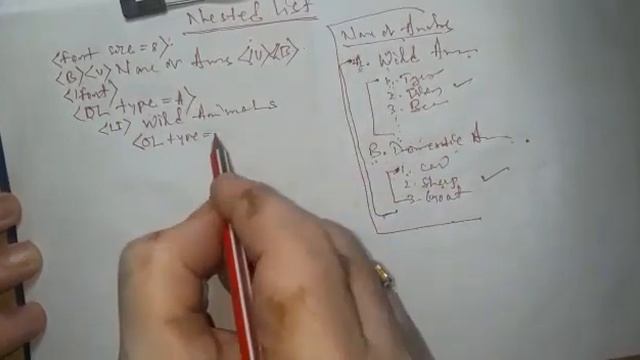 Nested list
<font size = 8>
<B><U> Name of Anms </U></B>
</font>
<OL type = A>
<LI> Wild Animals
<OL type =
Name of Anmls
A. Wild Anm
1. Tiger
2.
3. Bear
B. Domestic Anm.
1. cow
2. Sheep
3. Goat